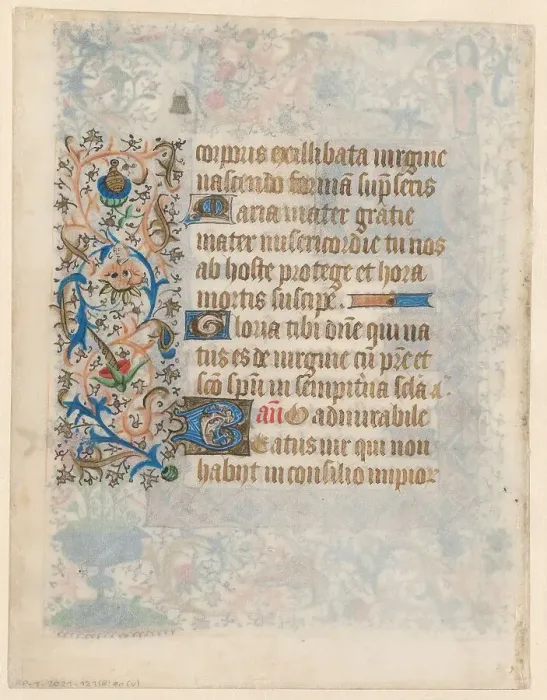 corporis ex illibata uirgine
nascendo formā sūpseris
Maria mater gratie
mater misericordie tu nos
ab hoste protege et hora
mortis suscipe.
Gloria tibi dn̄e qui na
tus es de uirgine cū pr̄e et
sc̄o sp̄u in sempit̄na sc̄la a.
an̄ O admirabile
Beatus uir qui non
habyt in consilio impior